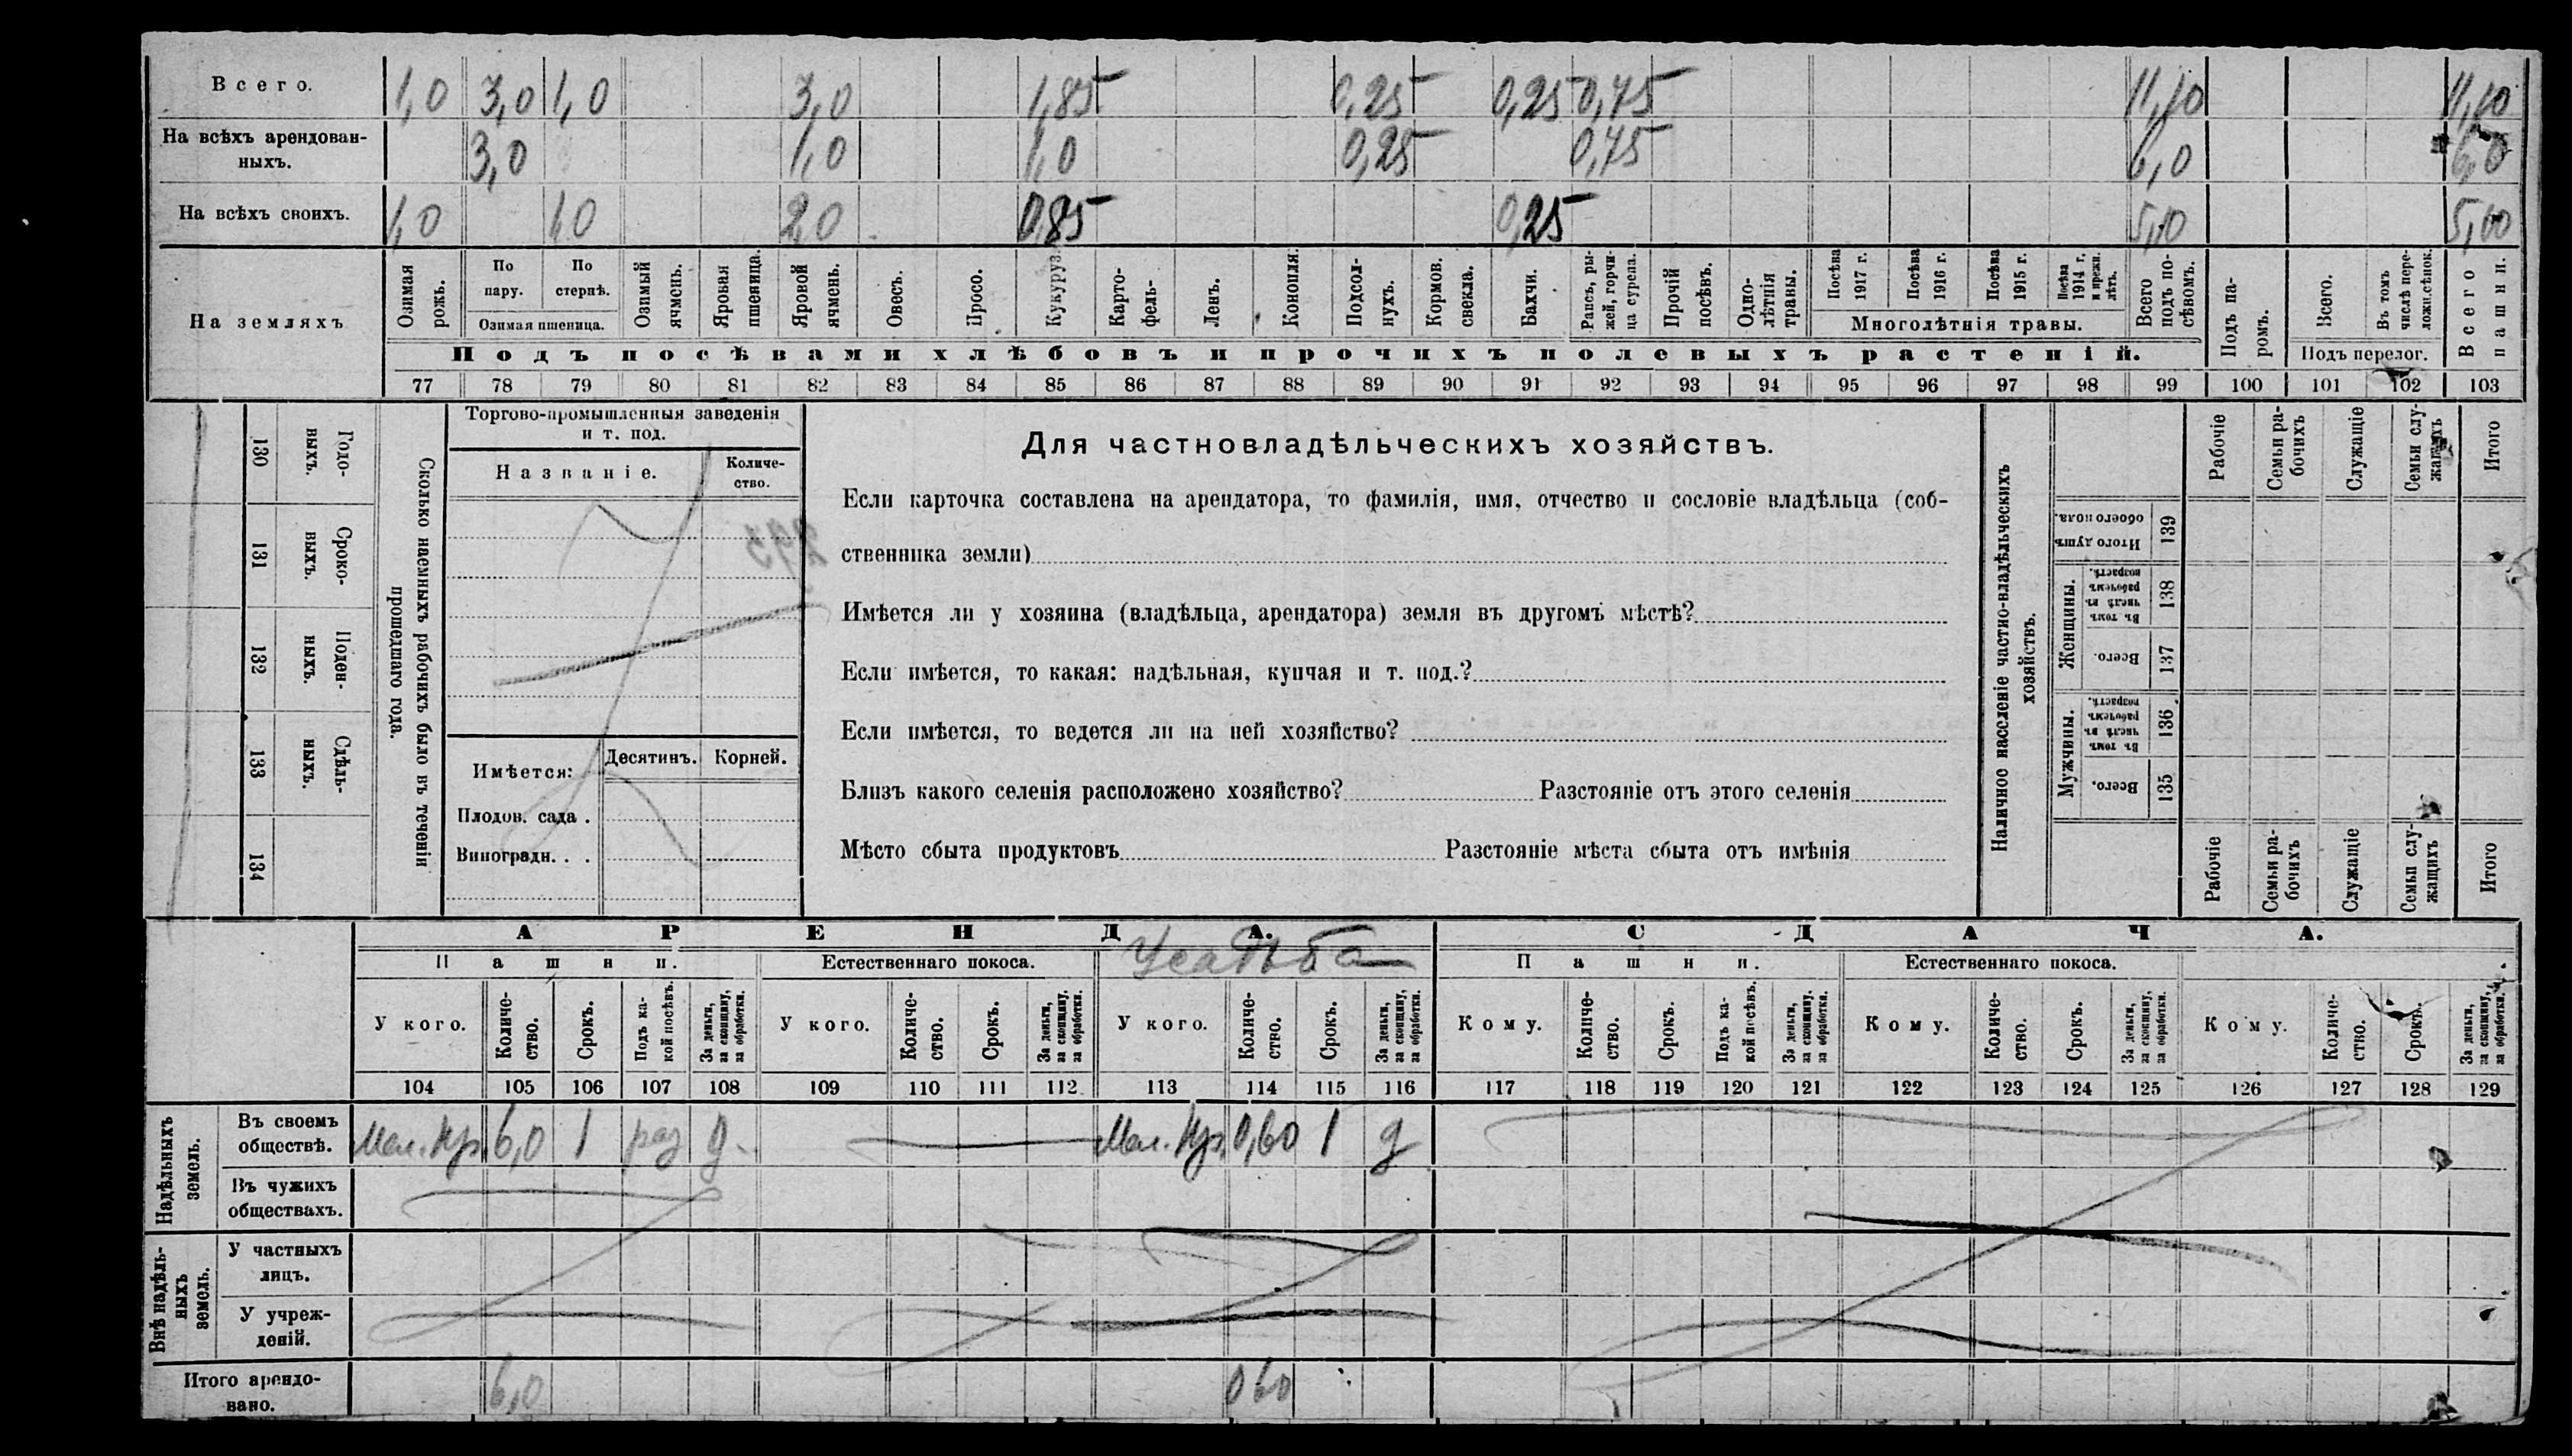 Всего. 1,0 3,0 1,0 3,0 1,85 0,25 0,25 0,75 11,10 11,10
На всѣхъ арендован-
ныхъ. 3,0 1,0 1,0 0,25 0,75 6,0 6,0
На всѣхъ своихъ. 1,0 1,0 2,0 0,85 0,25 5,10
На земляхъ
Озимая рожь.
По пару.
По стернѣ.
Озимая пшеница.
Озимый ячмень.
Яровая пшеница.
Яровой ячмень.
Овесъ.
Просо.
Кукуруз.
Карто-
фель.
Ленъ.
Конопля.
Подсол-
нухъ.
Кормов.
свекла.
Бахчи.
Рапсъ, ры-
жей, горчи-
ца сурепа.
Прочій посѣвъ.
Одно-
лѣтнія
травы.
Посѣва 1917 г.
Посѣва 1916 г.
Посѣва 1915 г.
Посѣва 1914 г. и прежн. лѣтъ.
Многолѣтнія травы.
Всего подъ по-
сѣвомъ.
Подъ посѣвами хлѣбовъ и прочихъ полевыхъ растеній.
Подъ па-
ромъ.
Всего.
Въ томъ числѣ пере-
ложн. сѣнок.
Подъ перелог.
Всего пашни.
77 78 79 80 81 82 83 84 85 86 87 88 89 90 91 92 93 94 95 96 97 98 99 100 101 102 103
130 Годо-
выхъ.
131 Сроко-
выхъ.
132 Поден-
ныхъ.
133 Сдѣль-
ныхъ.
134
Сколько наемныхъ рабочихъ было въ теченіи
прошедшаго года.
Торгово-промышленныя заведенія
и т. под.
Названіе. Количе-
ство.
293
Имѣется: Десятинъ. Корней.
Плодов. сада.
Виноградн...
Для частновладѣльческихъ хозяйствъ.
Если карточка составлена на арендатора, то фамилія, имя, отчество и сословіе владѣльца (соб-
ственника земли)
Имѣется ли у хозяина (владѣльца, арендатора) земля въ другомъ мѣстѣ?
Если имѣется, то какая: надѣльная, купчая и т. под.?
Если имѣется, то ведется ли на ней хозяйство?
Близъ какого селенія расположено хозяйство? Разстояніе отъ этого селенія
Мѣсто сбыта продуктовъ Разстояніе мѣста сбыта отъ имѣнія
Наличное населеніе частно-владѣльческихъ
хозяйствъ.
Рабочіе
Семьи ра-
бочихъ
Служащіе
Семьи слу-
жащихъ
Итого
Итого душъ обоего пола. 139
Женщины.
Въ томъ числѣ въ рабочемъ возрастѣ. 138
Всего. 137
Мужчины.
Въ томъ числѣ въ рабочемъ возрастѣ. 136
Всего. 135
Рабочіе
Семьи ра-
бочихъ
Служащіе
Семьи слу-
жащихъ
Итого
АРЕНДА. СДАЧА.
Пашни. Естественнаго покоса. Усадьба Пашни. Естественнаго покоса.
У кого. Количе-
ство. Срокъ. Подъ ка-
кой посѣвъ. За деньги, за скопщину, за обработки.
У кого. Количе-
ство. Срокъ. За деньги, за скопщину, за обработки.
У кого. Количе-
ство. Срокъ. За деньги, за скопщину, за обработки.
Кому. Количе-
ство. Срокъ. Подъ ка-
кой посѣвъ. За деньги, за скопщину, за обработки.
Кому. Количе-
ство. Срокъ. За деньги, за скопщину, за обработки.
Кому. Количе-
ство. Срокъ. За деньги, за скопщину, за обработки.
104 105 106 107 108 109 110 111 112 113 114 115 116 117 118 119 120 121 122 123 124 125 126 127 128 129
Надѣльныхъ
земель.
Въ своемъ
обществѣ. Мал. Кр. 6,0 1 раз д. Мал. Кр. 0,60 1 д
Въ чужихъ
обществахъ.
Внѣ надѣль-
ныхъ
земель.
У частныхъ
лицъ.
У учреж-
деній.
Итого арендо-
вано. 6,0 0 60